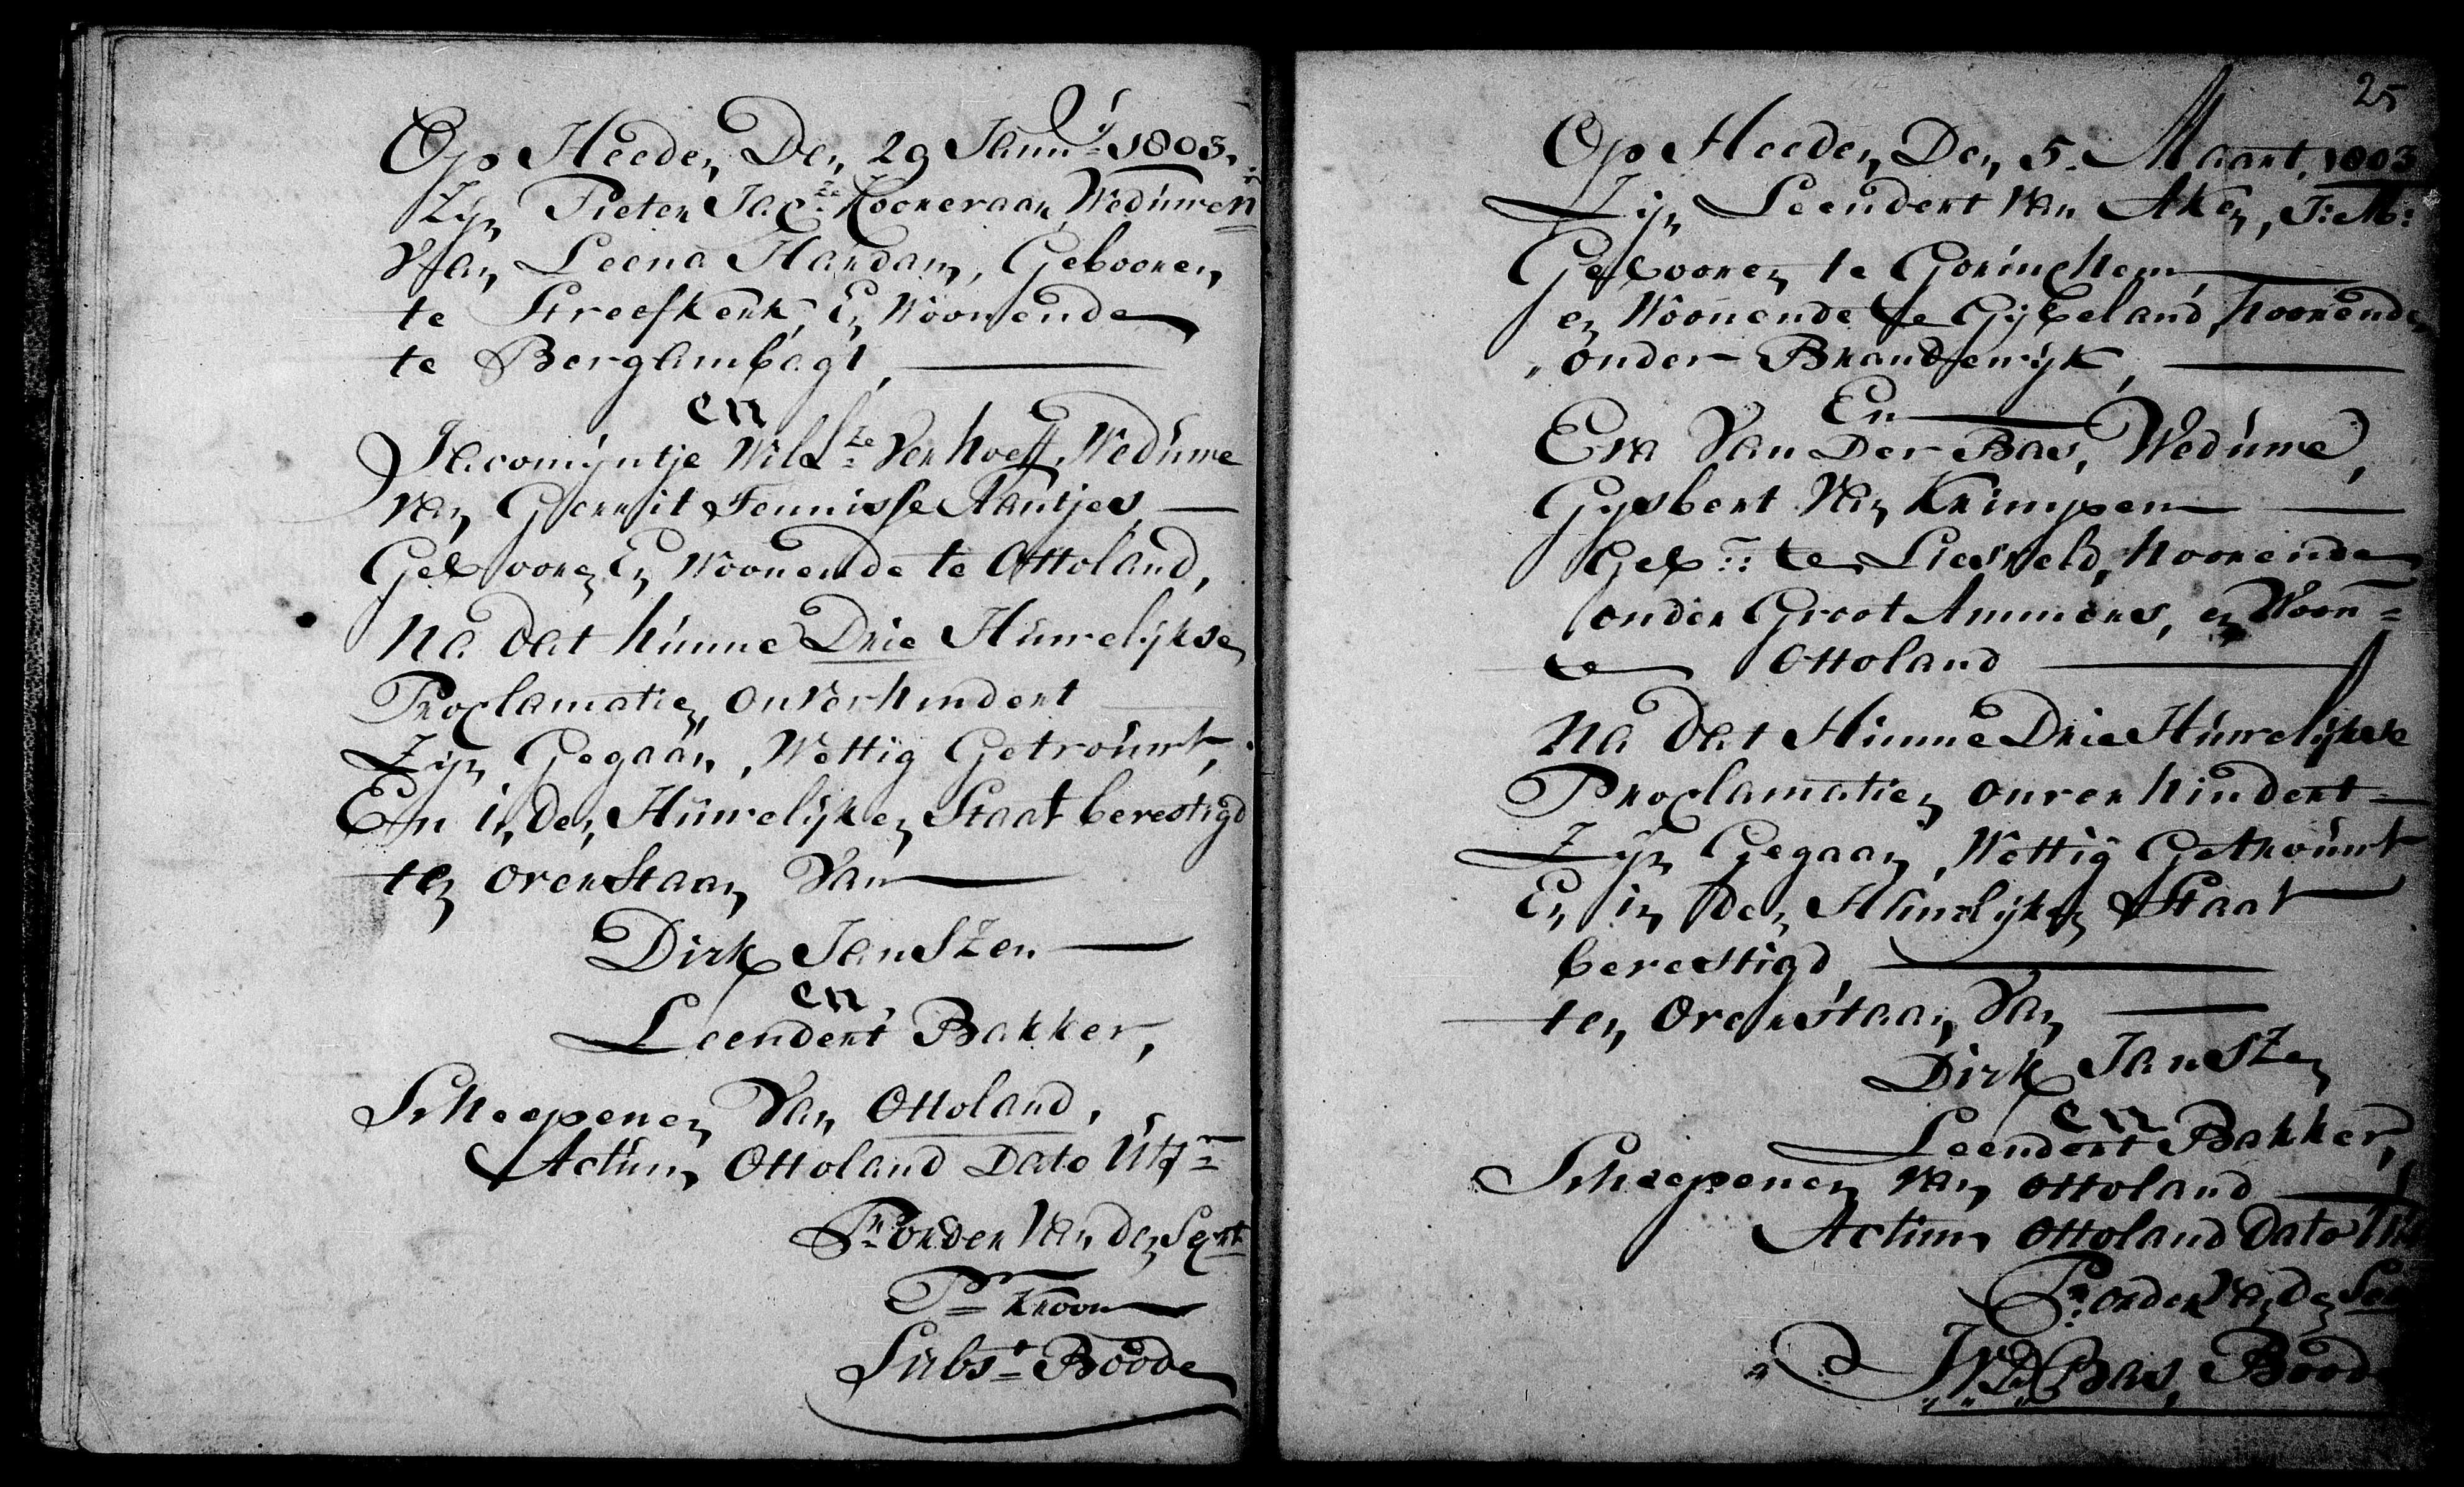 Op Heeden Den 29 Janu.y 1803.
Zyn Pieter Jac:ze Kooreraar, Weduwen:r
Van Leena Hardam, Gebooren
te Streefkerk, En Woonende
te Bergambagt,
en
Jacomyntje Will:ze Verhoeff, Weduwe
Van Gerrit Teunisse Aantjes
Gebooren En Woonende te Ottoland,
Na dat hunne Drie Huwelykse
Proclamatien onverhindert
Zyn Gegaan, Wettig Getrouwt,
En in den Huwelyken Staat bevestigd
ten overstaan Van
Dirk JanSzen
en
Leendert Bakker,
Scheepenen Van Ottoland,
Actum Ottoland Dato Uts=
P:r order Van den Secrt
P= Kroon
Subs:t Boode
25
Op Heeden Den 5. Maart, 1803
Zyn Leendert Van Aken, J:M:
Gebooren te Gorinchem
en Woonende te Gybeland, hoorende
onder Brandwyk,
En
Eva Van Der Bas, Weduwe,
Gysbert Van Krimpen
Geb:: te Liesveld, hoorende
onder Groot Ammers, en Woon=
te Ottoland
Na dat Hunne Drie Huwelykse
Proclamatien onverhindert
Zyn Gegaan, Wettig Getrouwt
En in den Huwlyken Staat
bevestigd,
ten Overstaan Van
Dirk JanSzen
en
Leendert Bakker,
Scheepenen Van Ottoland
Actum Ottoland Dato
P:r order Van den
Bas, Bood